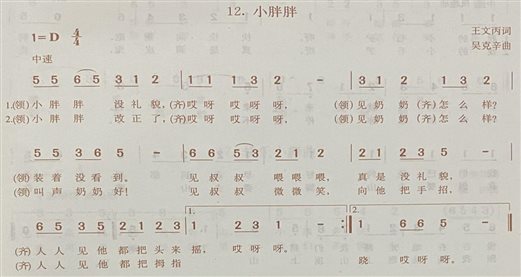 12. 小胖胖
1=D 4/4
王文丙词
吴克辛曲
中速
5 5 6 5 3 1 2 | 1 1 1 3 2 - | 3 1 2 1 3 2 |
1.(领)小胖胖 没礼貌,(齐)哎呀哎呀呀, (领)见奶奶(齐)怎么样?
2.(领)小胖胖 改正了,(齐)哎呀哎呀呀, (领)见奶奶(齐)怎么样?
5 5 3 6 5 - | 6 6 5 3 2 1 2 | 2 1 2 3 5 - |
(领)装着没看到。 见叔叔 喂喂喂, 真是没礼貌,
(领)叫声奶奶好! 见叔叔 微微笑, 向他把手招,
6 6 3 5 2 1 2 3 | 1. 1 2 3 1 - :| 2. 1 6 6 5 - ||
(齐)人人见他都把头来摇, 哎呀呀。
(齐)人人见他都把拇指 跷 哎呀呀。